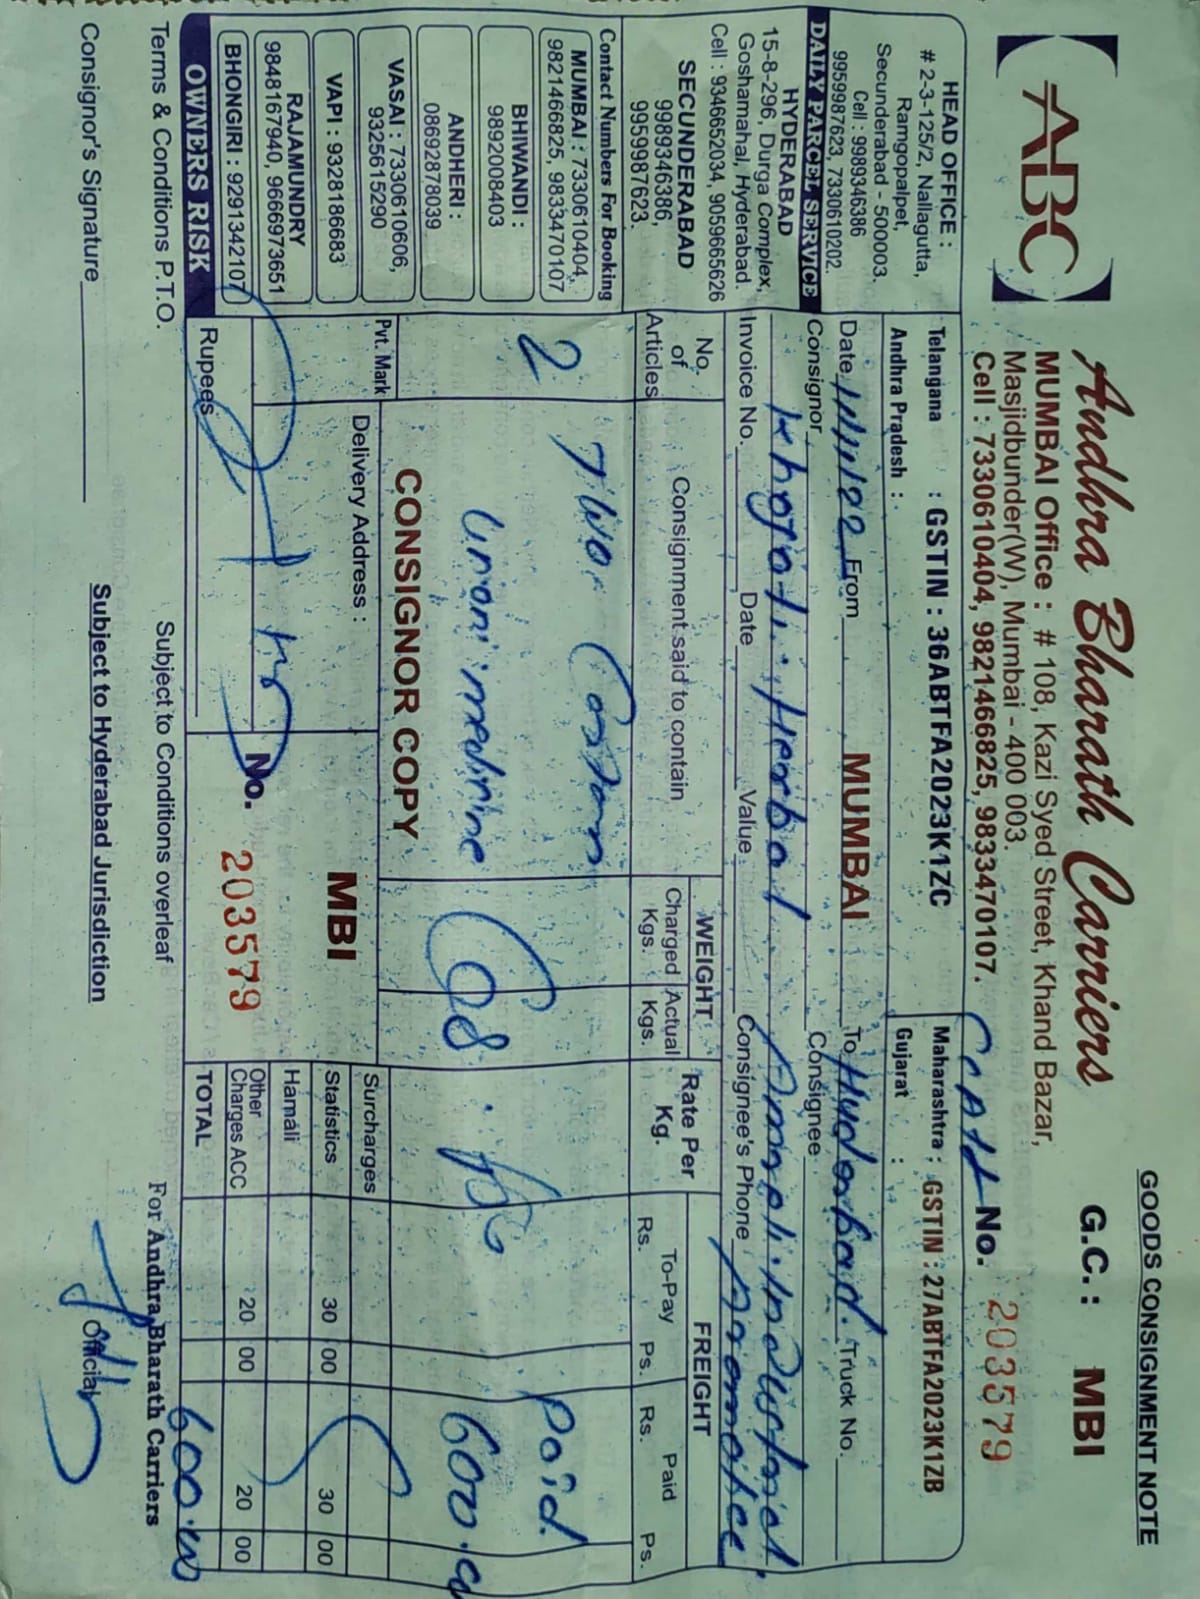 GOODS CONSIGNMENT NOTE
ABC
Andhra Bharath Carriers G.C. : MBI
MUMBAI Office : # 108, Kazi Syed Street, Khand Bazar,
Masjidbunder(W), Mumbai - 400 003.
Cell : 7330610404, 9821466825, 9833470107.
No. 203579
HEAD OFFICE :
# 2-3-125/2, Nallagutta,
Ramgopalpet,
Secunderabad - 500003.
Cell : 9989346386
9959987623, 7330610202.
DAILY PARCEL SERVICE
HYDERABAD
15-8-296, Durga Complex,
Goshamahal, Hyderabad.
Cell : 9346652034, 9059665626
SECUNDERABAD
9989346386,
9959987623.
Contact Numbers For Booking
MUMBAI : 7330610404,
9821466825, 9833470107
BHIWANDI :
9892008403
ANDHERI :
08692878039
VASAI : 7330610606,
9325615290
VAPI : 9328186683
RAJAMUNDRY
9848167940, 9666973651
BHONGIRI : 9291342107
OWNERS RISK
Telangana : GSTIN : 36ABTFA2023K1ZC Maharashtra : GSTIN : 27ABTFA2023K1ZB
Andhra Pradesh : Gujarat :
Date From MUMBAI To Hyderabad. Truck No.
Consignor Consignee
Herbal
Invoice No. Date Value Consignee's Phone
No. of Articles Consignment said to contain WEIGHT Charged Kgs. Actual Kgs. Rate Per Kg. FREIGHT To-Pay Rs. Ps. Paid Rs. Ps.
2 Two Paid
Unani 68 600
CONSIGNOR COPY
Pvt. Mark Delivery Address : MBI
Surcharges
Statistics 30 00 30 00
Hamali
Other Charges ACC 20 00 20 00
Rupees No. 203579 TOTAL 600.00
Terms & Conditions P.T.O. Subject to Conditions overleaf For Andhra Bharath Carriers
Consignor's Signature Subject to Hyderabad Jurisdiction Official